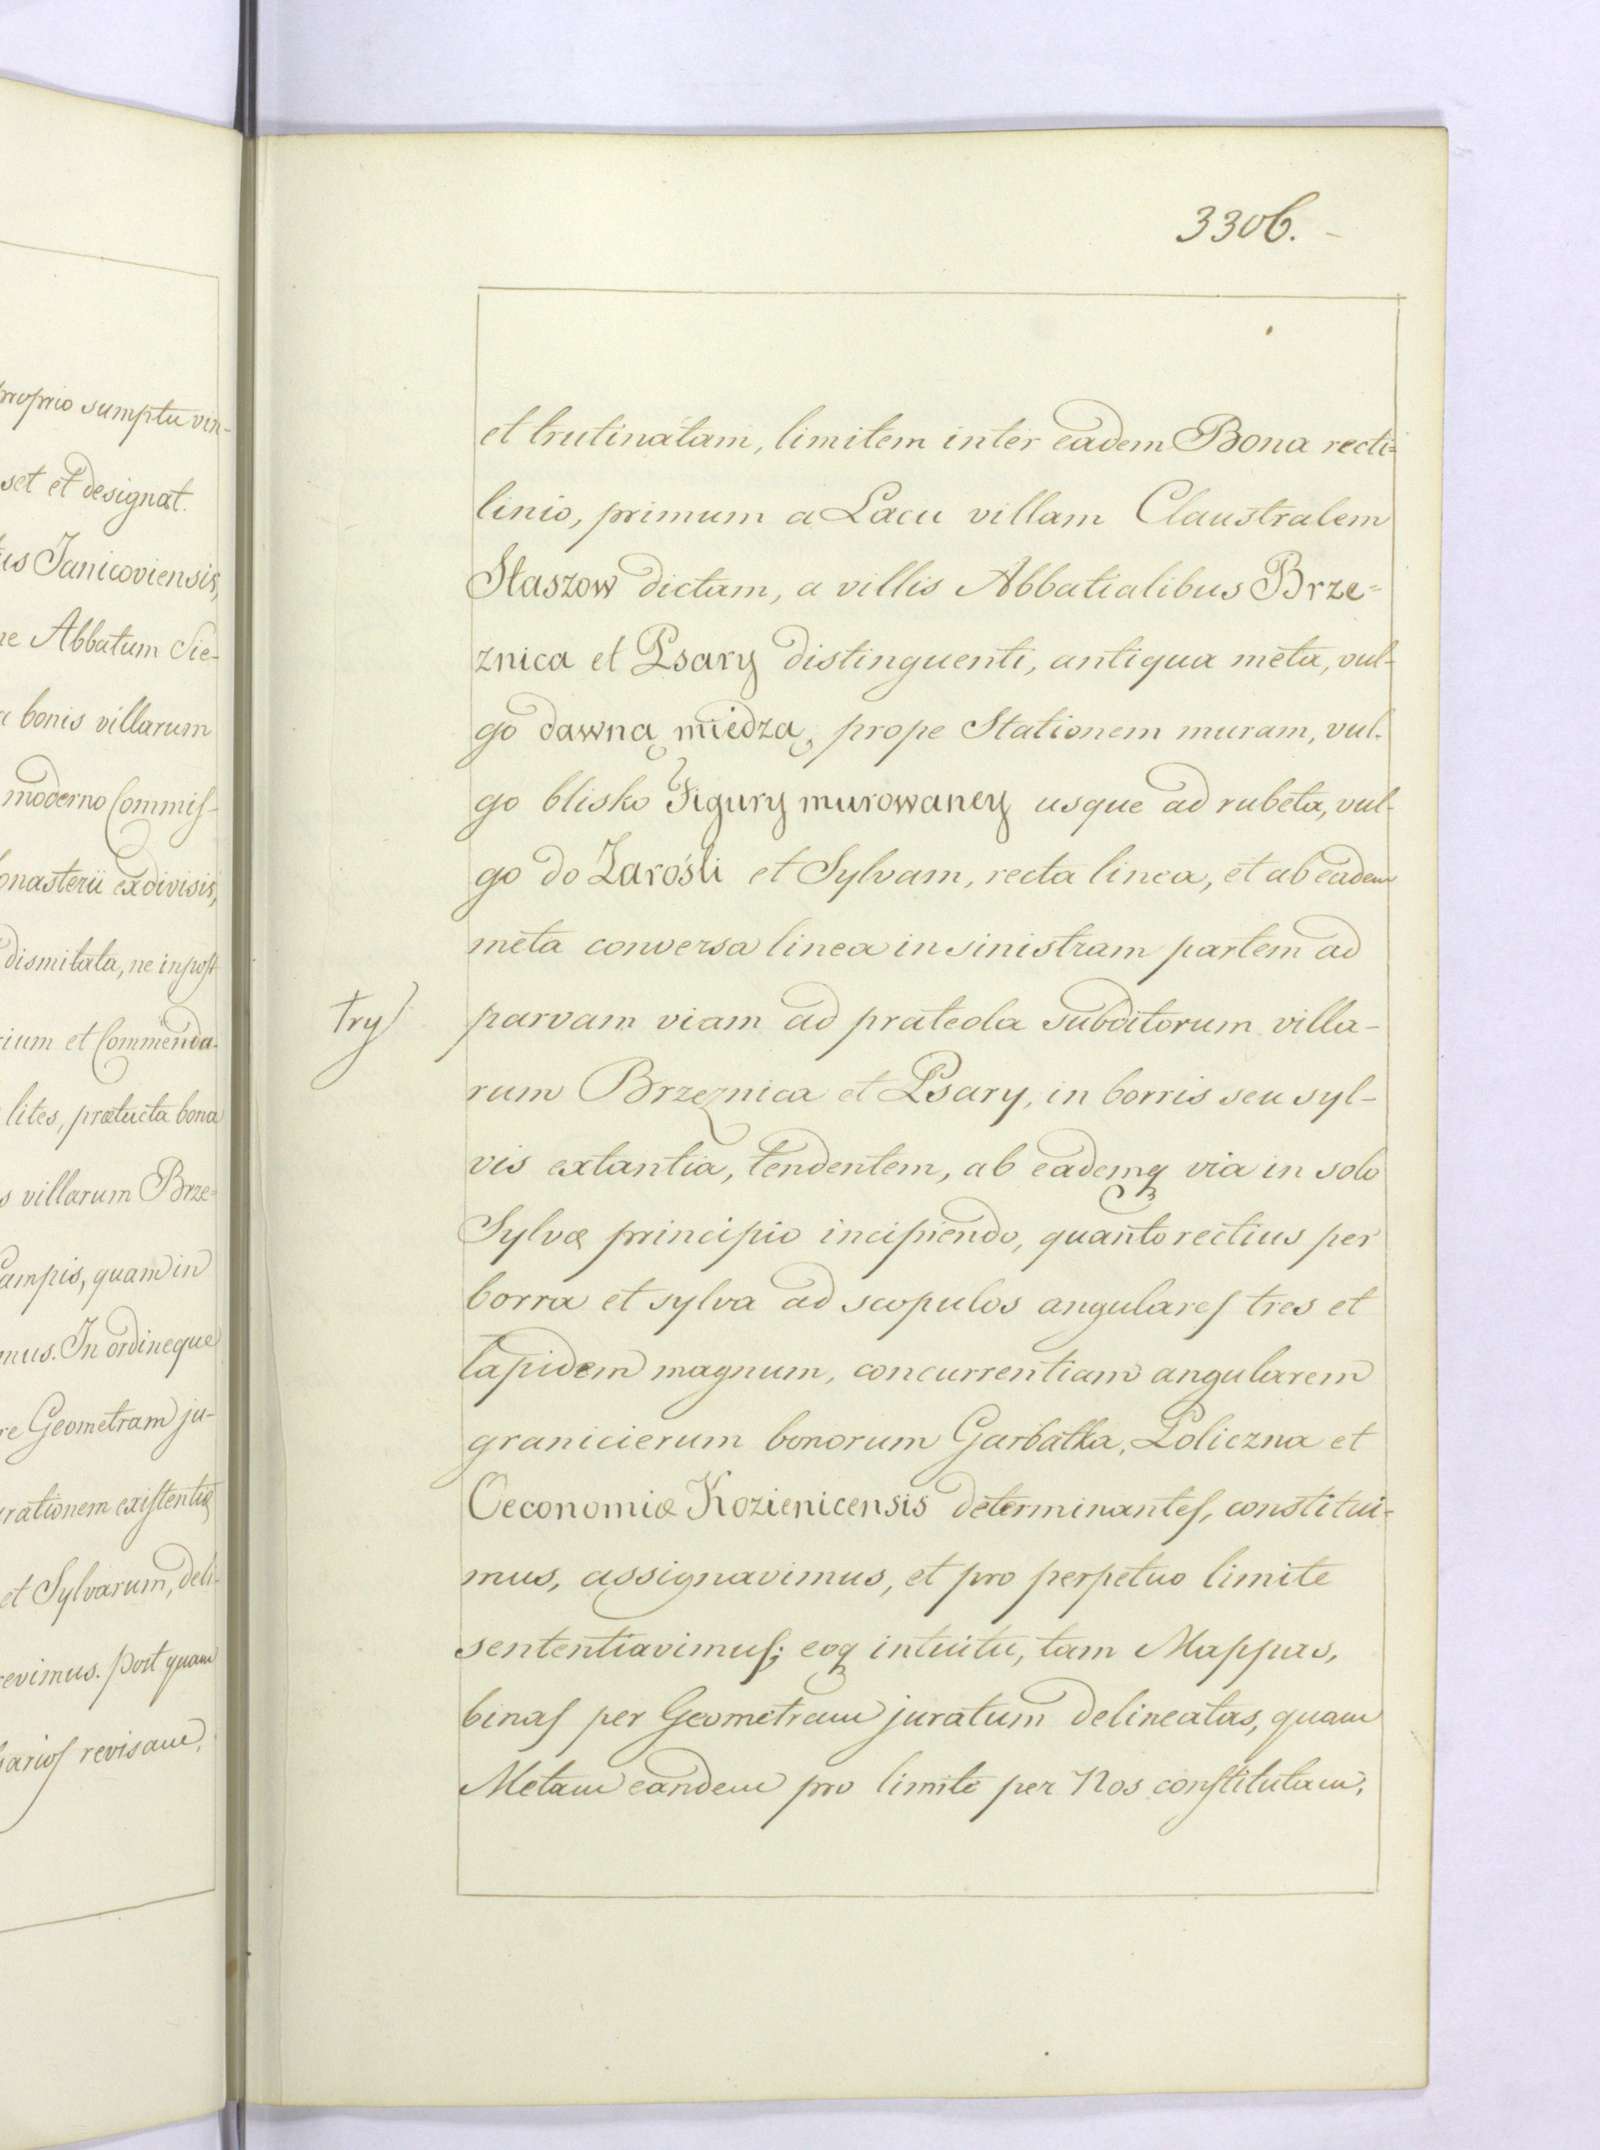 proprio sumptu vin-
set et designat.
Janicoviensis,
Abbatum Sie-
bonis villarum
moderno Commiſ-
exdivisis,
dismitata, ne inpost
et Commenda-
lites, prætacta bona
villarum Brze=
quam in
In ordineque
Geometram ju-
existentiæ
et Sylvarum, deli-
post quam
revisam,
3306.-
et trutinatam, limitem inter eadem Bona recti=
linio, primum a Lacu villam Claustralem
Staszow dictam, a villis Abbatialibus Brze=
znica et Psary distinguenti, antiqua meta, vul-
go dawną miedzą, prope Stationem muram, vul-
go blisko Figury murowaney usque ad rubeta, vul-
go do Zarośli et Sylvam, recta linea, et ab eadem
meta conversa linea in sinistram partem ad
try parvam viam ad prateola subditorum villa-
rum Brzeznica et Psary, in borris seu syl-
vis extantia, tendentem, ab eademq via in solo
Sylvæ principio incipiendo, quanto rectius per
borra et sylva ad scopulos angulareſ tres et
lapidem magnum, concurrentiam angularem
granicierum bonorum Garbatka, Policzna et
Oeconomiæ Kozienicensis determinanteſ, constitui-
mus, assignavimus, et pro perpetuo limite
sententiavimuſ; eoq intuitu, tam Mappas,
binaſ per Geometram juratum delineatas, quam
Metam eandem pro limite per Nos conſtitutam,